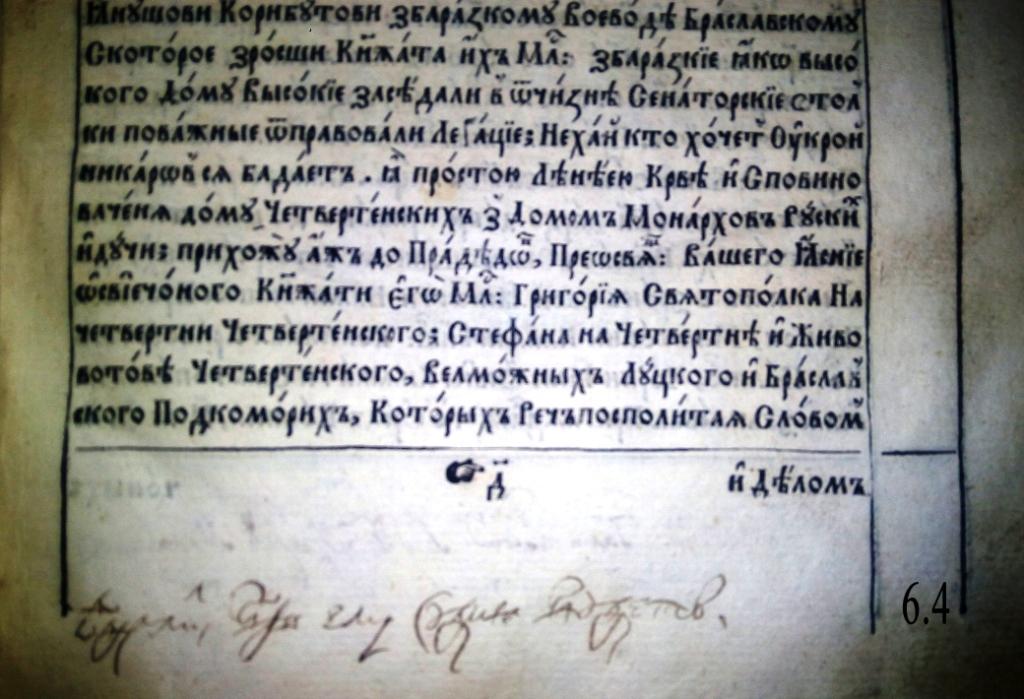 Янушови Корибутови збара́зкому Воево́дѣ Бра́славскому
Ското́рое зро́сши Кнж҃а́та и́хъ Мл҃: збара́зкїе ꙗ́кѡ высо́
кого До́му Высо́кїе засѣ́дали в ѿчи́знѣ Сена́торскїе стол
ки пова́жные ѿправова́ли Леґа́цїе; Неха́й кто хо́четъ Оукрой
никарѡв ся бада́етъ. ꙗ про́стою Лѣнѣ́ею Крве и Сповино
ваче́ня до́му Четверте́нскихъ з Домомъ Мона́рховъ Ру́ских
иду́чи; прихожу́ а́жъ до Пра́дѣдѡв, Преѡсвя҃: Ва́шего Ꙗ́сне
ѡсвїечо́ного Кнж҃а́ти є҆гѡ̀ Мл҃: Григо́рїя Святопо́лка На
четвертни Четверте́нского; Стефа́на на Четве́ртнѣ и Живо
вото́вѣ Четверте́нского, Велмо́жныхъ Лу́цкого и Бра́слав
ского Подкомо́рихъ, Кото́рыхъ Речъпосполи́тая Сло́вомъ
☛ д҃ и Дѣ́ломъ
6.4